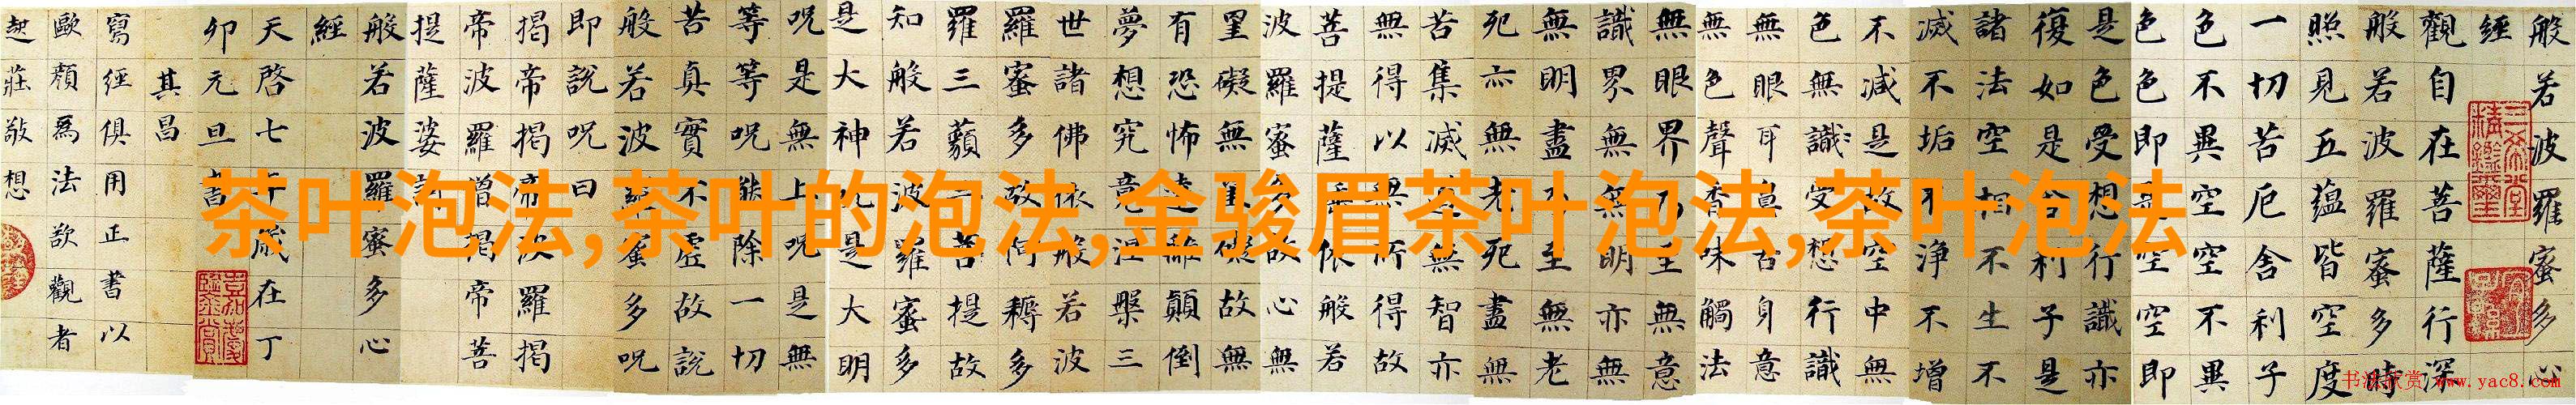 般若波羅蜜多心
經
觀自在菩薩行深
般若波羅蜜多時
照見五蘊皆空度
一切苦厄舍利子
色不異空空不異
色色即是空空即
是色受想行識亦
復如是舍利子是
諸法空相不生不
滅不垢不淨不增
不減是故空中無
色無識受想行識
無眼耳鼻舌身意
無色聲香味觸法
無眼界乃至無意
識界無無明亦無
無明盡乃至無老
死亦無老死盡無
苦集滅道無智亦
無得以無所得故
菩提薩埵依般若
波羅蜜多故心無
罣礙無罣礙故無
有恐怖遠離顛倒
夢想究竟涅槃三
世諸佛依般若波
羅蜜多故阿耨多
羅三藐三菩提故
知般若波羅蜜多
是大神咒是大明
咒是無上咒是無
等等咒能除一切
苦真實不虛故說
般若波羅蜜多咒
即說咒曰
揭帝揭帝波羅揭
帝波羅僧揭帝菩
提薩婆訶
般若波羅蜜多心
經
天啓七年歲在丁
卯元旦書
其昌
寫經俱用正書以
歐顏為法欲觀者
起莊敬想
茶叶泡法,茶叶的泡法,金骏眉茶叶泡法,茶叶泡法
书法欣赏 www.yac8.com